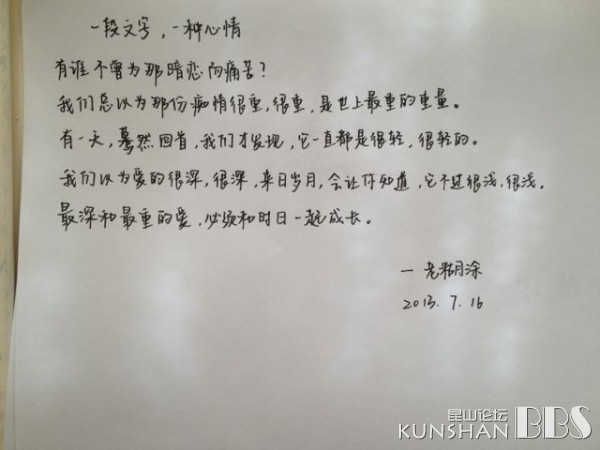 一段文字，一种心情
有谁不曾为那暗恋而痛苦？
我们总以为那份痴情很重，很重，是世上最重的重量。
有一天，蓦然回首，我们才发现，它一直都是很轻，很轻的。
我们以为爱的很深，很深，来日岁月，会让你知道，它不过很浅，很浅。
最深和最重的爱，必须和时日一起成长。
一老糊涂
2013.7.16
昆山论坛
KUNSHAN BBS